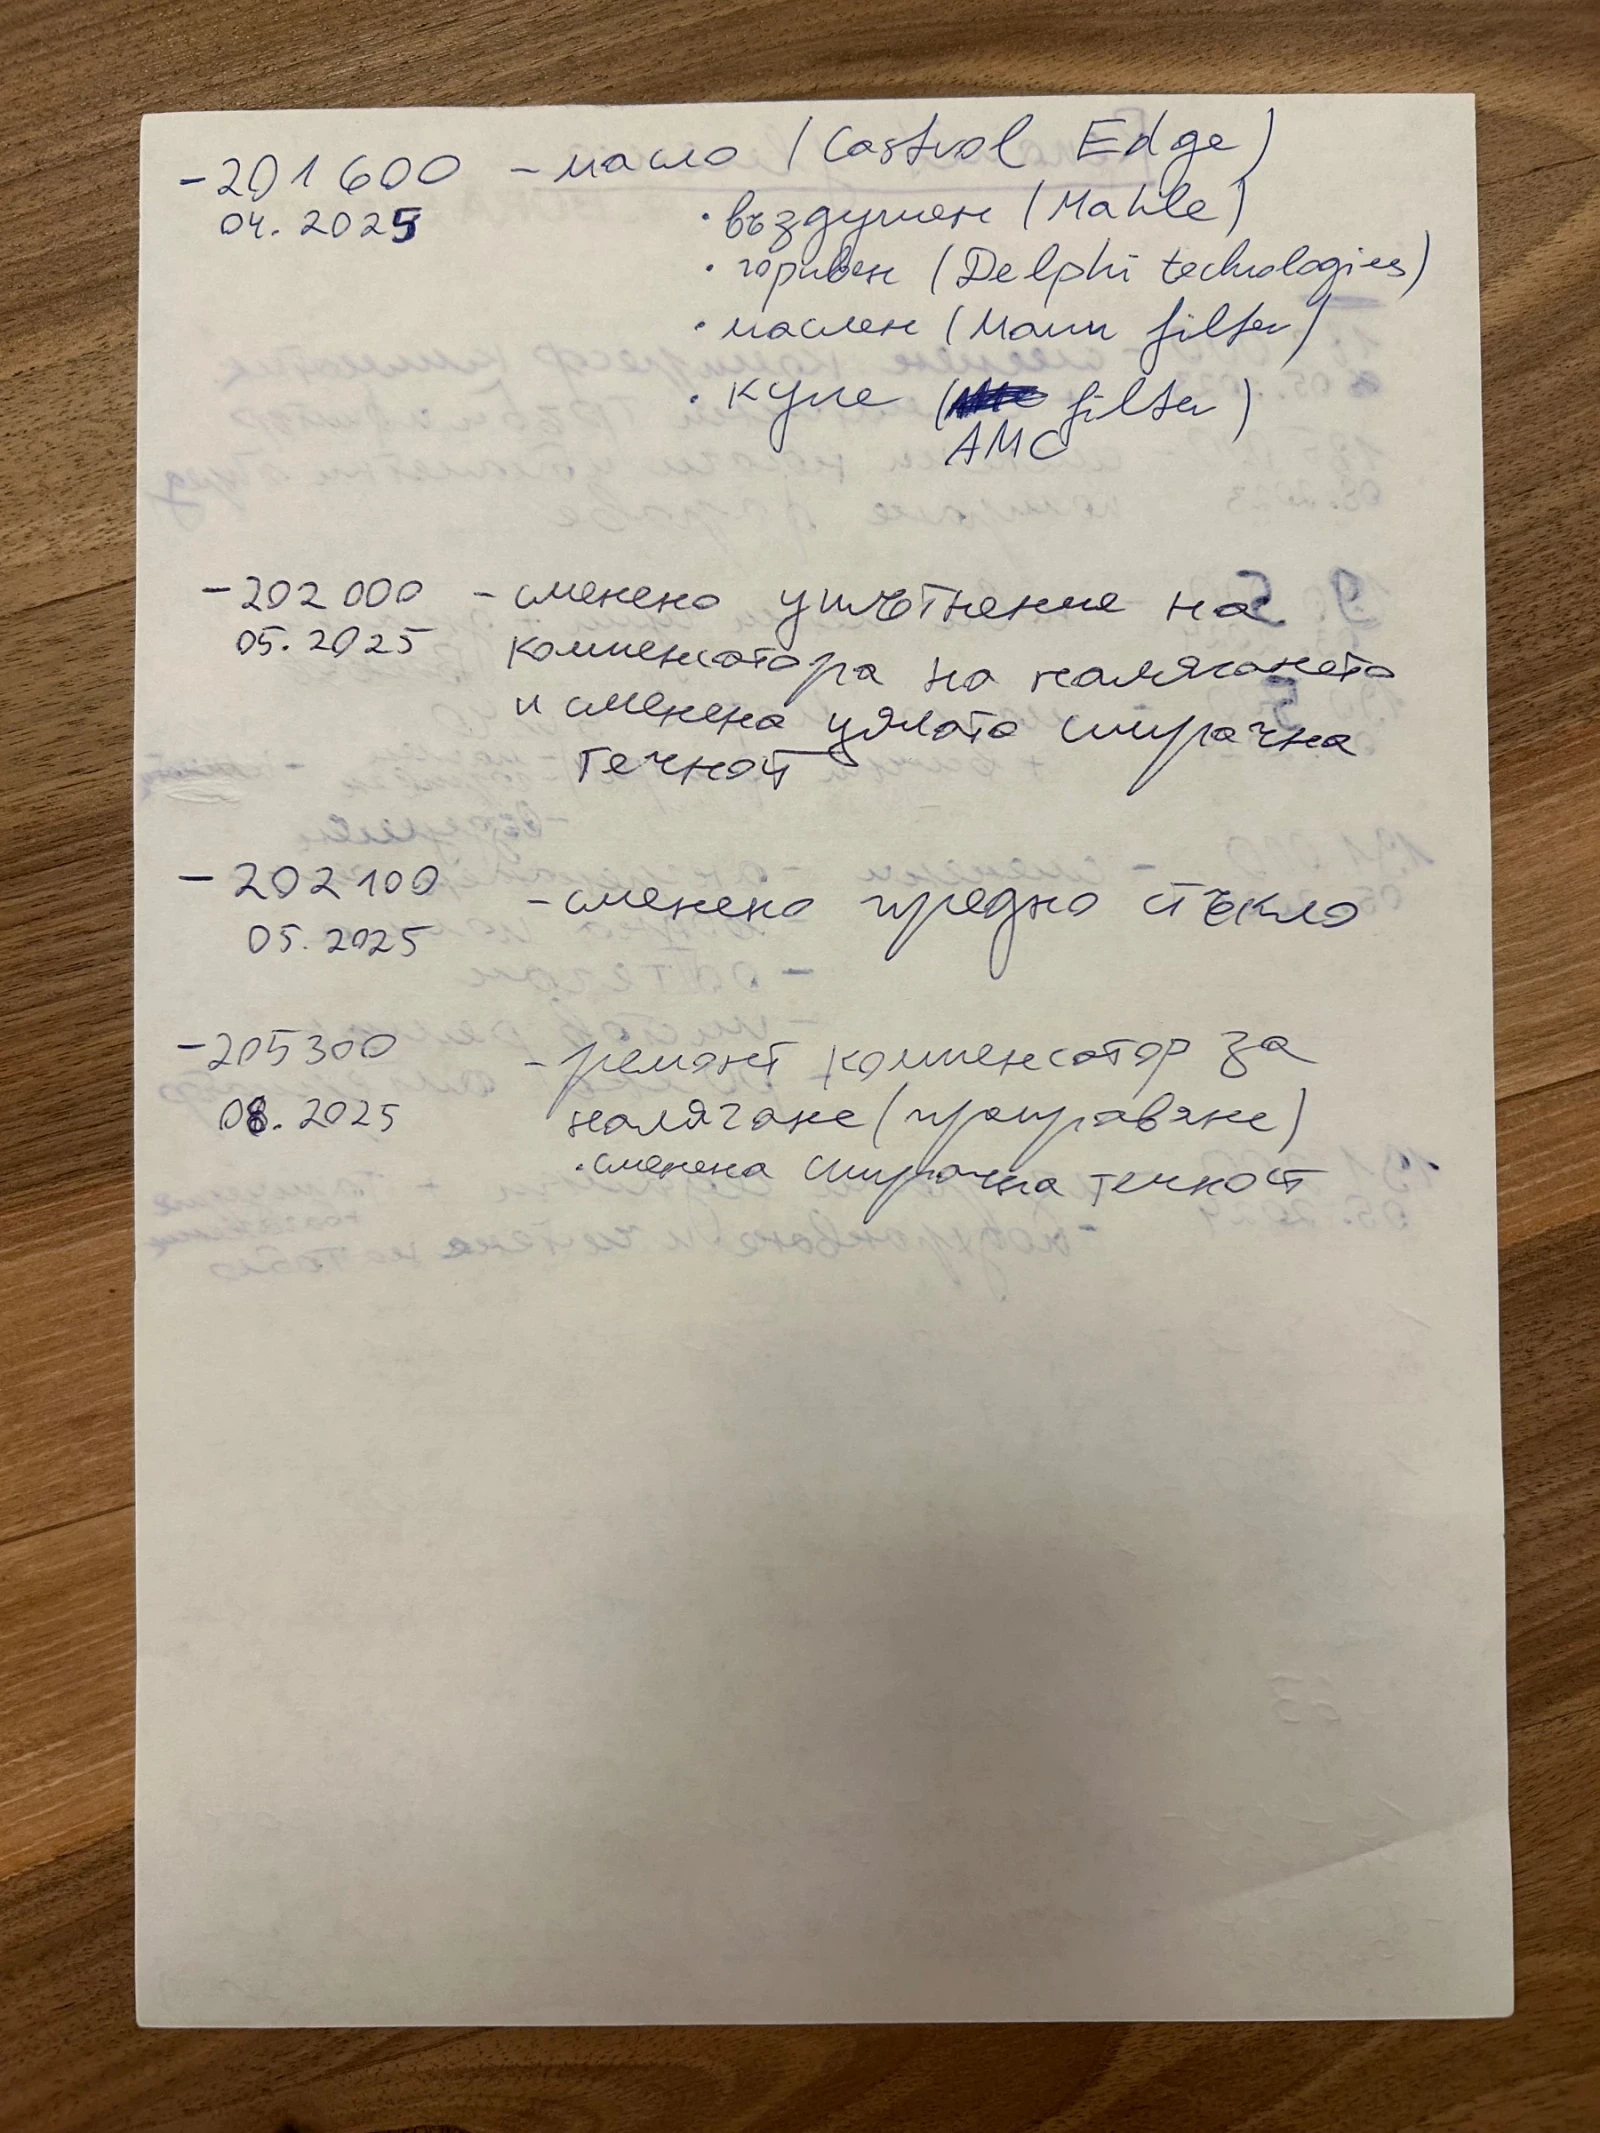 - 201 600 - масло (Castrol Edge)
04. 2025 • въздушен (Mahle)
• горивен (Delphi technologies)
• маслен (Mann filter)
• купе (filter)
AMC
- 202 000 - сменено уплътнение на
05. 2025 компенсатора на налягането
и сменена цялата спирачна
течност
- 202 100 - сменено предно стъкло
05. 2025
- 205 300 - ремонт компенсатор за
08. 2025 налягане (
• сменена спирачна течност